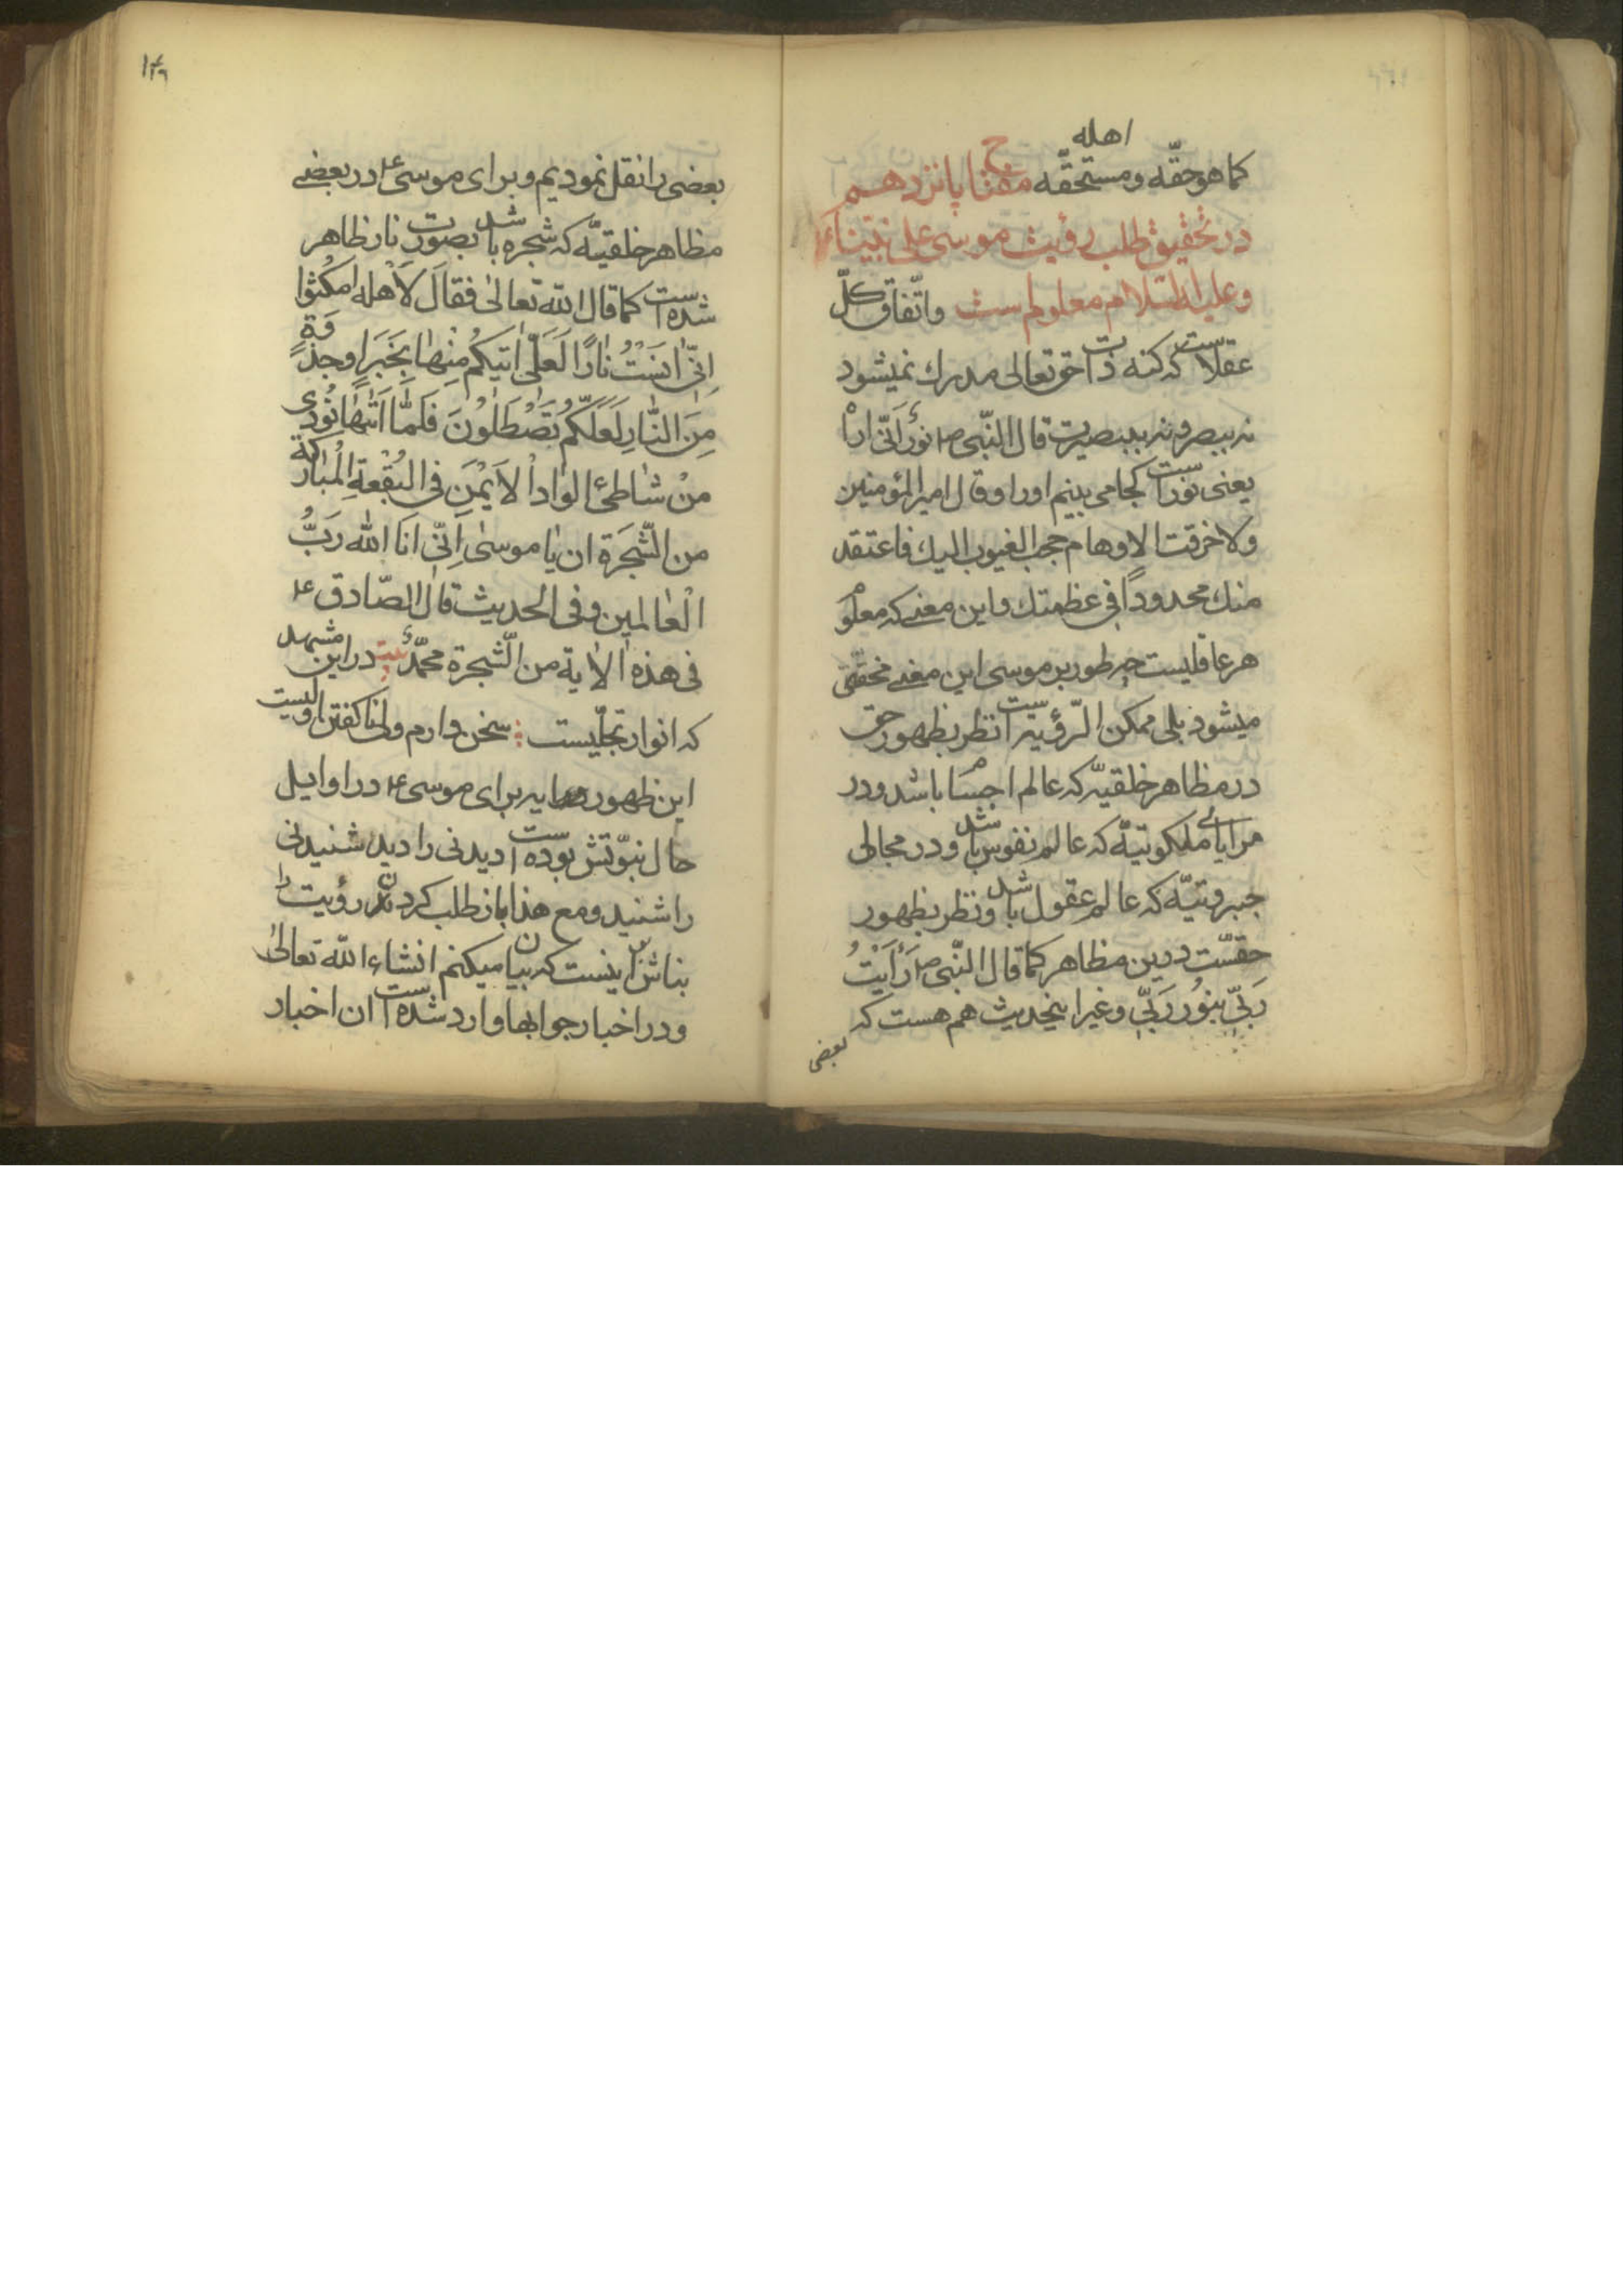 اهله
کما هو حقّه و مستحقّه مفتاح پانزدهم
در تحقیق طلب رؤیت موسی علی نبیّنا ء
و علیه السّلام معلوم است و اتّفاق کلّ
عقلاست که کنه ذات حق تعالی مدرك نمیشود
نه ببصر و نه ببصیرت قال النّبی ص نورٌ اَنّی اراه
یعنی نور است کجا می بینم او را و قال امیر المؤمنین
ولا خرقت الاوهام حجب الغیوب الیك فاعتقد
منك محدوداً فی عظمتك و این معنی که معلوم
هر عاقلیست چه طور بر موسی این معنی مخفی
میشود بلی ممکن الرّؤیه است نظر بظهور حق
در مظاهر خلقیّه که عالم اجسام باشد و در
مرایای ملکوتیّه که عالم نفوس باشد و در مجالی
جبروتیّه که عالم عقول باشد و نظر بظهور
حقسّت درین مظاهر کما قال النّبی ص رَأَیْتُ
رَبّی بنُور رَبّی و غیر اینحدیث هم هست که
بعضی
۱۴۹
بعضی را نقل نمودیم و برای موسی ع در بعضی
مظاهر خلقیّه که شجره باشد بصورت نار ظاهر
شده است کما قال الله تعالی فقالَ لاَهله امکُثوا
اِنّی انَسْتُ نارًا لَعَلّی اتیکُم مِنها بِخَبَرٍ او جذوَةٍ
مِنَ النّارِ لَعَلّکُم تَصْطَلُونَ فَلَمّا اَتیها نُودی
منْ شاطئ الوادِ الاَیْمَنِ فی البُقْعَةِ المُبارَکَة
من الشّجَرَة ان یا موسی اِنّی اَنَا الله رَبُّ
الْعالمین و فی الحدیث قال الصّادق ع
فی هذه الایة من الشّجرة محمّد بیت در این مشهد
که انوار تجلّیست سخن دارم ولی ناگفتن اولیست
این ظهور برای موسی ع در اوایل
حال نبوّتش بوده است دیدنی را دید شنیدنی
را شنید و مع هذا باز طلب کردن رؤیت را
بناش اینست که بیان میکنم انشاء الله تعالی
و در اخبار جوابها وارد شده است ان اخبار